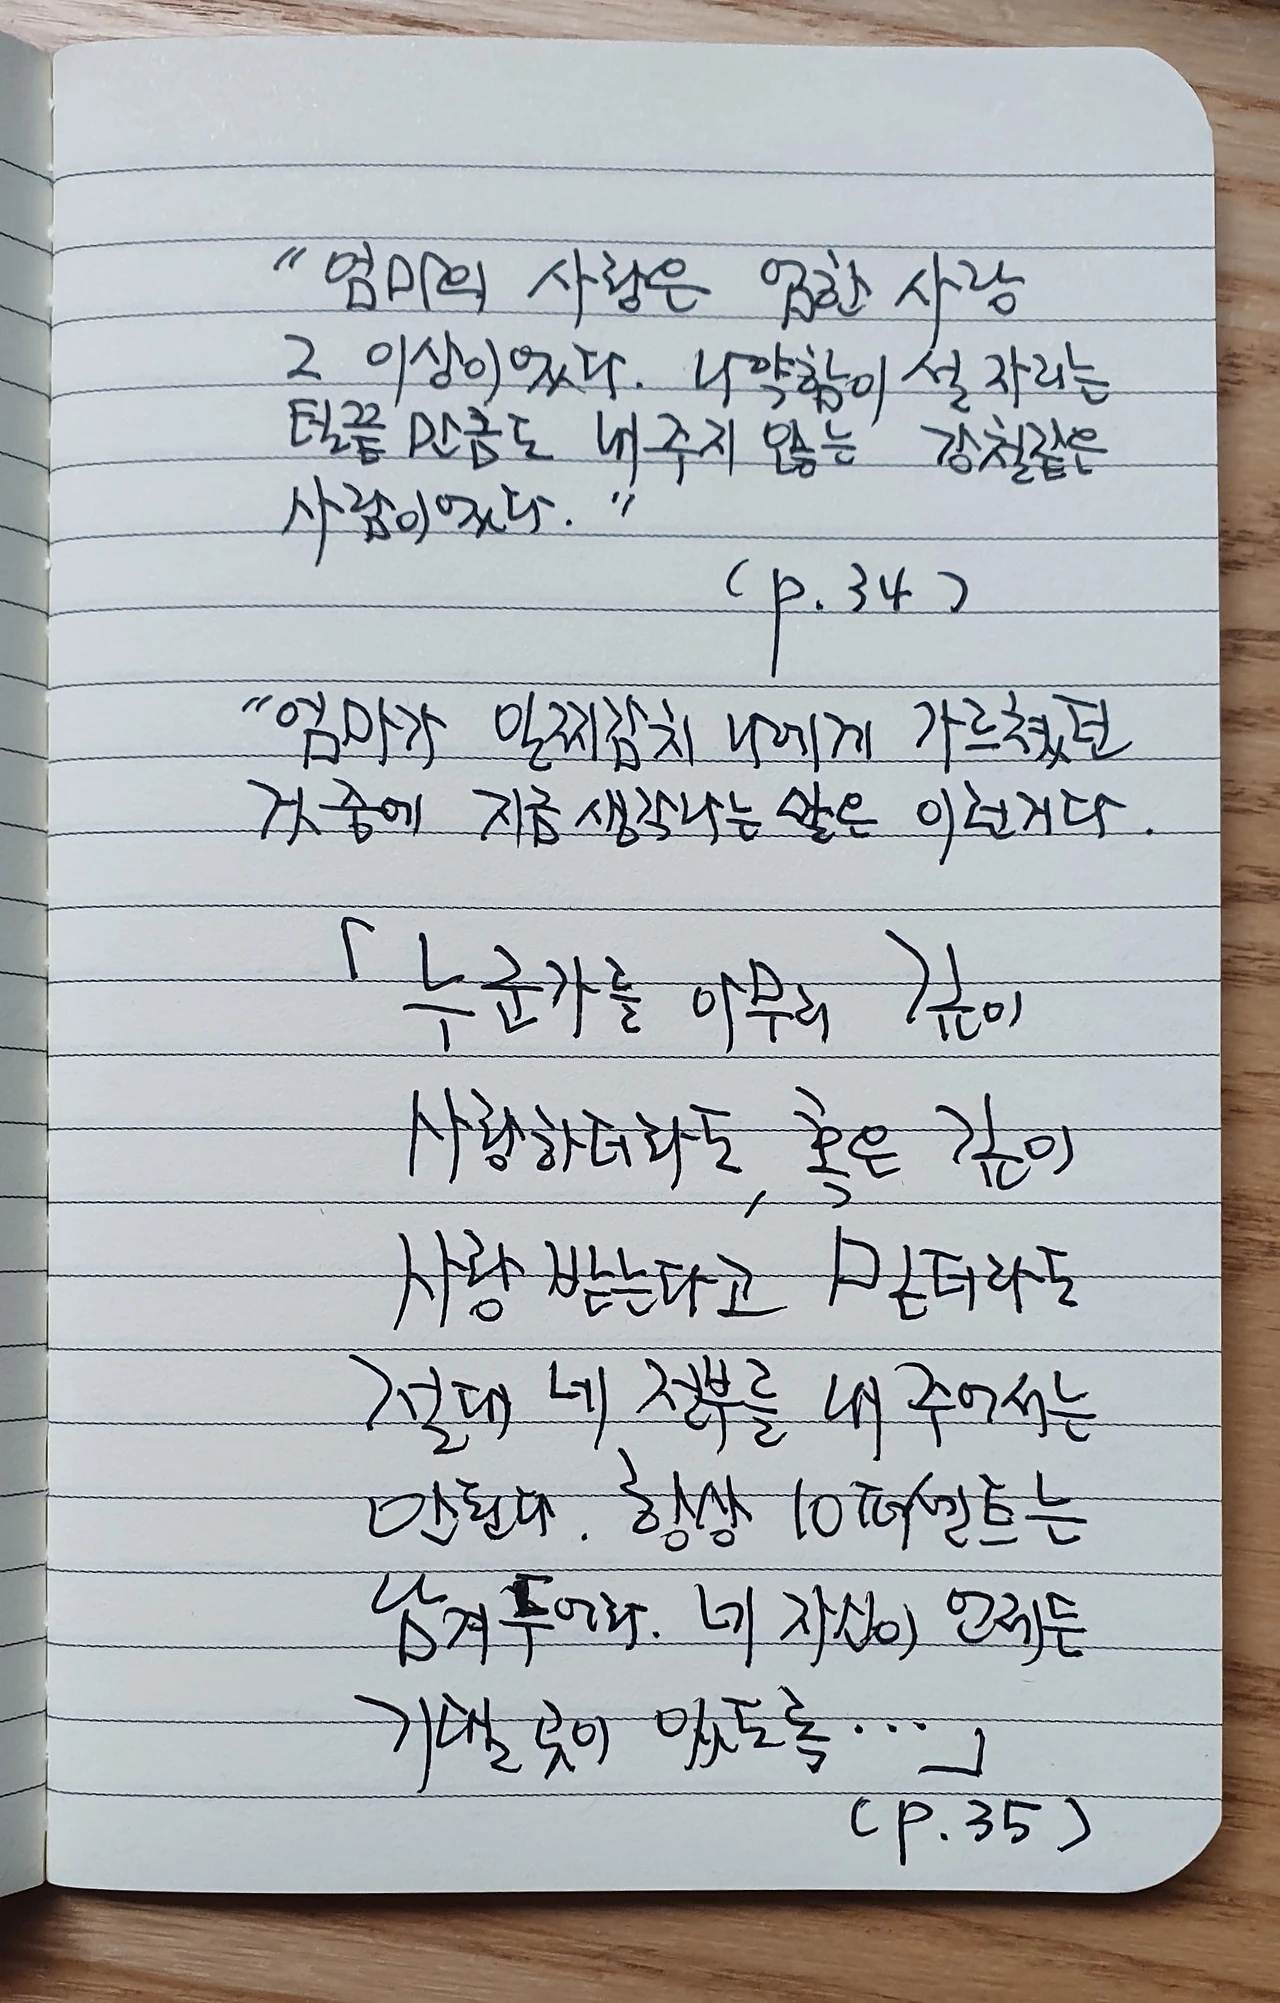 "엄마의 사랑은 엄한 사랑
그 이상이었다. 나약함이 설 자리는
털끝만큼도 내주지 않는 강철같은
사랑이었다."
(p.34)
"엄마가 일찌감치 나에게 가르쳤던
것 중에 지금 생각나는 말은 이런거다.
「누군가를 아무리 깊이
사랑하더라도, 혹은 깊이
사랑 받는다고 믿더라도
절대 네 전부를 내 주어서는
안된다. 항상 10퍼센트는
남겨 두어라. 네 자신이 언제든
기댈 곳이 있도록...」
(p.35)